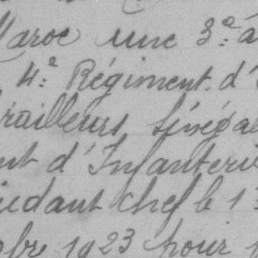 Maroc une 3.e à
4.e Régiment d'
railleurs Sénégal
nt d'Infanterie
judant chef le 1
bre 1923 pour